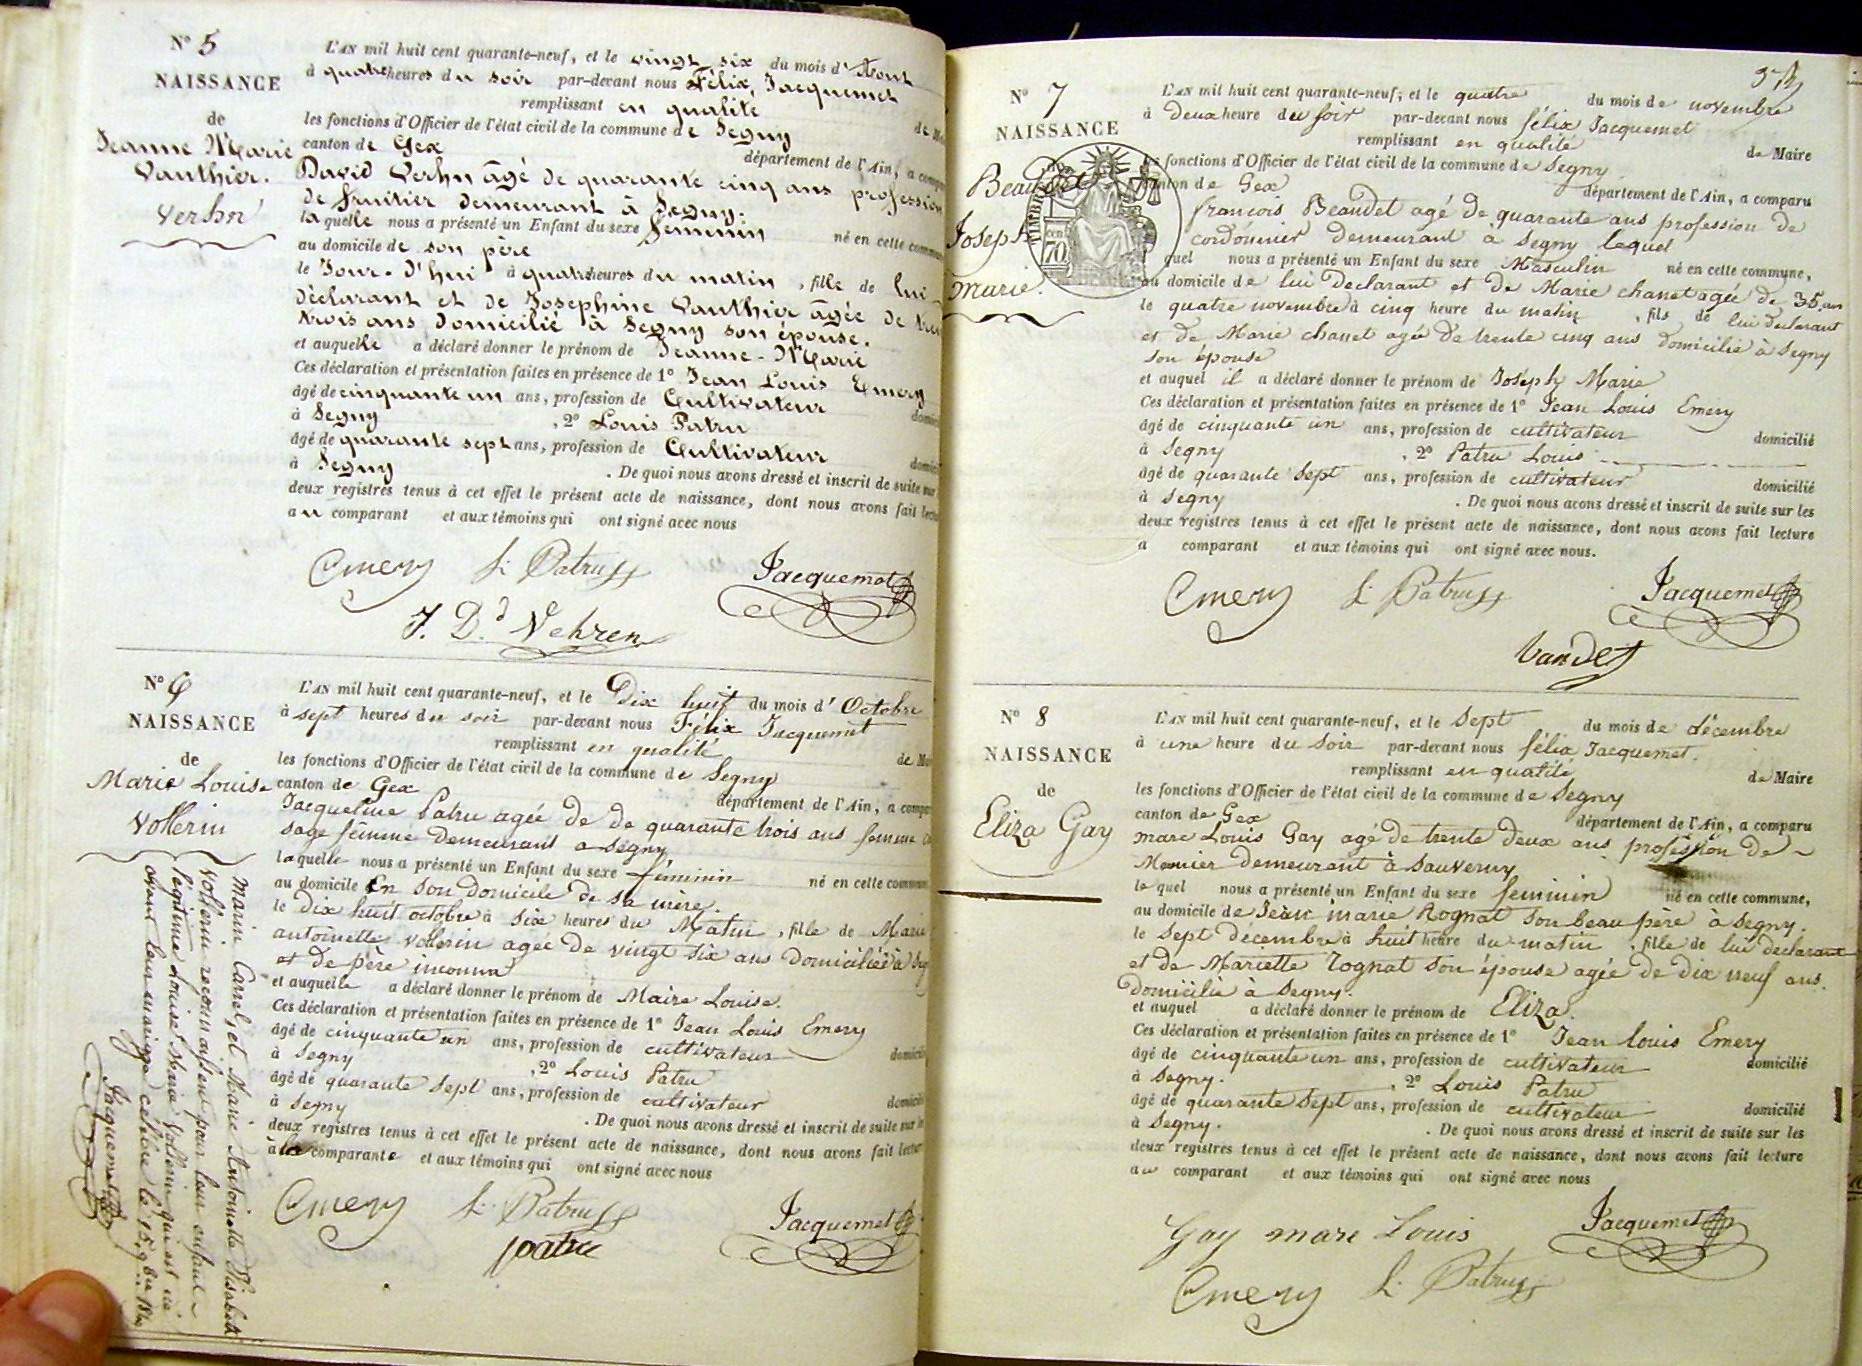 N° 5
NAISSANCE
de
Jeanne Marie
Vauthier.
Verhn
L'AN mil huit cent quarante-neuf, et le vingt six du mois d'Aout
à quatre heures du soir par-devant nous Félix Jacquemet
remplissant en qualité
les fonctions d'Officier de l'état civil de la commune de Segny
canton de Gex
département de l'Ain, a
David Verhn âgé de quarante cinq ans profession
de fruitier demeurant à Segny.
laquelle nous a présenté un Enfant du sexe féminin né en cette
au domicile de son père
le Jour-d'hui à quatre heures du matin, fille de lui
déclarant et de Josephine Vauthier âgée de
trois ans domicilié à Segny son épouse.
et auquelle a déclaré donner le prénom de Jeanne-Marie
Ces déclaration et présentation faites en présence de 1° Jean Louis Emery
âgé de cinquante un ans, profession de Cultivateur
à Segny , 2° Louis Patru
âgé de quarante sept ans, profession de Cultivateur
à Segny . De quoi nous avons dressé et inscrit de suite sur
deux registres tenus à cet effet le présent acte de naissance, dont nous avons fait
au comparant et aux témoins qui ont signé avec nous
Emery L. Patru Jacquemet
J. D.d Vehren
N° 6
NAISSANCE
de
Marie Louise
Vollerin
L'AN mil huit cent quarante-neuf, et le Dix huit du mois d'Octobre
à sept heures du soir par-devant nous Félix Jacquemet
remplissant en qualité
les fonctions d'Officier de l'état civil de la commune de Segny
canton de Gex
département de l'Ain, a
Jacqueline Patru agée de de quarante trois ans femme
sage femme demeurant a Segny
laquelle nous a présenté un Enfant du sexe féminin né en cette
au domicile En son domicile de sa mère.
le Dix huit octobre à six heures du Matin, fille de Marie
antoinette vollerin agée de vingt six ans Domiciliée à
et de père inconnu
et auquelle a déclaré donner le prénom de Maire Louise.
Ces déclaration et présentation faites en présence de 1° Jean Louis Emery
âgé de cinquante un ans, profession de cultivateur
à Segny , 2° Louis Patru
âgé de quarante sept ans, profession de cultivateur
à Segny . De quoi nous avons dressé et inscrit de suite sur
deux registres tenus à cet effet le présent acte de naissance, dont nous avons fait
à la comparante et aux témoins qui ont signé avec nous
Emery L. Patru Jacquemet
patru
Marin Carrel, et Marie Antoinette Elisabeth
Vollerin reconnaissent pour leur enfant
légitime Louise Marie Vollerin qui est né
avant leur mariage célébré le 15
Jacquemet
N° 7
NAISSANCE
Beaudet
Joseph
Marie.
70
L'AN mil huit cent quarante-neuf, et le quatre du mois de novembre
à Deux heure du soir par-devant nous félix Jacquemet
remplissant en qualité de Maire
les fonctions d'Officier de l'état civil de la commune de Segny
canton de Gex département de l'Ain, a comparu
françois Beaudet agé de quarante ans profession de
cordonnier demeurant à Segny lequel
quel nous a présenté un Enfant du sexe Masculin né en cette commune,
au domicile de lui Declarant et de Marie chanet agée de 35 ans
le quatre novembre à cinq heure du matin, fils de lui declarant
et de Marie chanet agé de trente cinq ans domicilié à Segny
son épouse
et auquel il a déclaré donner le prénom de Joseph Marie
Ces déclaration et présentation faites en présence de 1° Jean Louis Emery
âgé de cinquante un ans, profession de cultivateur domicilié
à Segny , 2° Patru Louis
âgé de quarante sept ans, profession de cultivateur domicilié
à Segny . De quoi nous avons dressé et inscrit de suite sur les
deux registres tenus à cet effet le présent acte de naissance, dont nous avons fait lecture
a comparant et aux témoins qui ont signé avec nous.
Emery L. Patru Jacquemet
N° 8
NAISSANCE
de
Eliza Gay
L'AN mil huit cent quarante-neuf, et le Sept du mois de décembre
à une heure du Soir par-devant nous félix Jacquemet.
remplissant en qualité de Maire
les fonctions d'Officier de l'état civil de la commune de Segny
canton de Gex département de l'Ain, a comparu
marc Louis Gay agé de trente deux ans profession de
Menier demeurant à Sauverny
le quel nous a présenté un Enfant du sexe feminin né en cette commune,
au domicile de Jean marie Rognat son beau père à Segny.
le Sept décembre à huit heure du matin, fille de lui declarant
et de Mariette Rognat son épouse agée de dix neuf ans.
Domicilie à Segny.
et auquel a déclaré donner le prénom de Eliza.
Ces déclaration et présentation faites en présence de 1° Jean louis Emery
âgé de cinquante un ans, profession de cultivateur domicilié
à Segny. , 2° Louis Patru
âgé de quarante Sept ans, profession de cultivateur domicilié
à Segny. . De quoi nous avons dressé et inscrit de suite sur les
deux registres tenus à cet effet le présent acte de naissance, dont nous avons fait lecture
au comparant et aux témoins qui ont signé avec nous
Gay marc Louis Jacquemet
Emery L. Patru